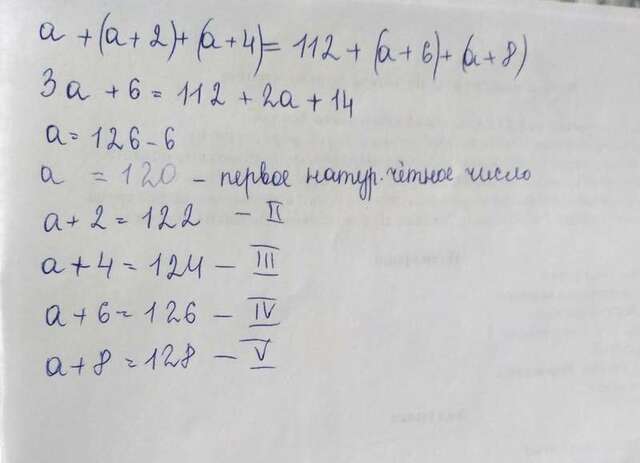 a + (a + 2) + (a + 4) = 112 + (a + 6) + (a + 8)
3a + 6 = 112 + 2a + 14
a = 126 - 6
a = 120 – первое натур. чётное число
a + 2 = 122 – II
a + 4 = 124 – III
a + 6 = 126 – IV
a + 8 = 128 – V